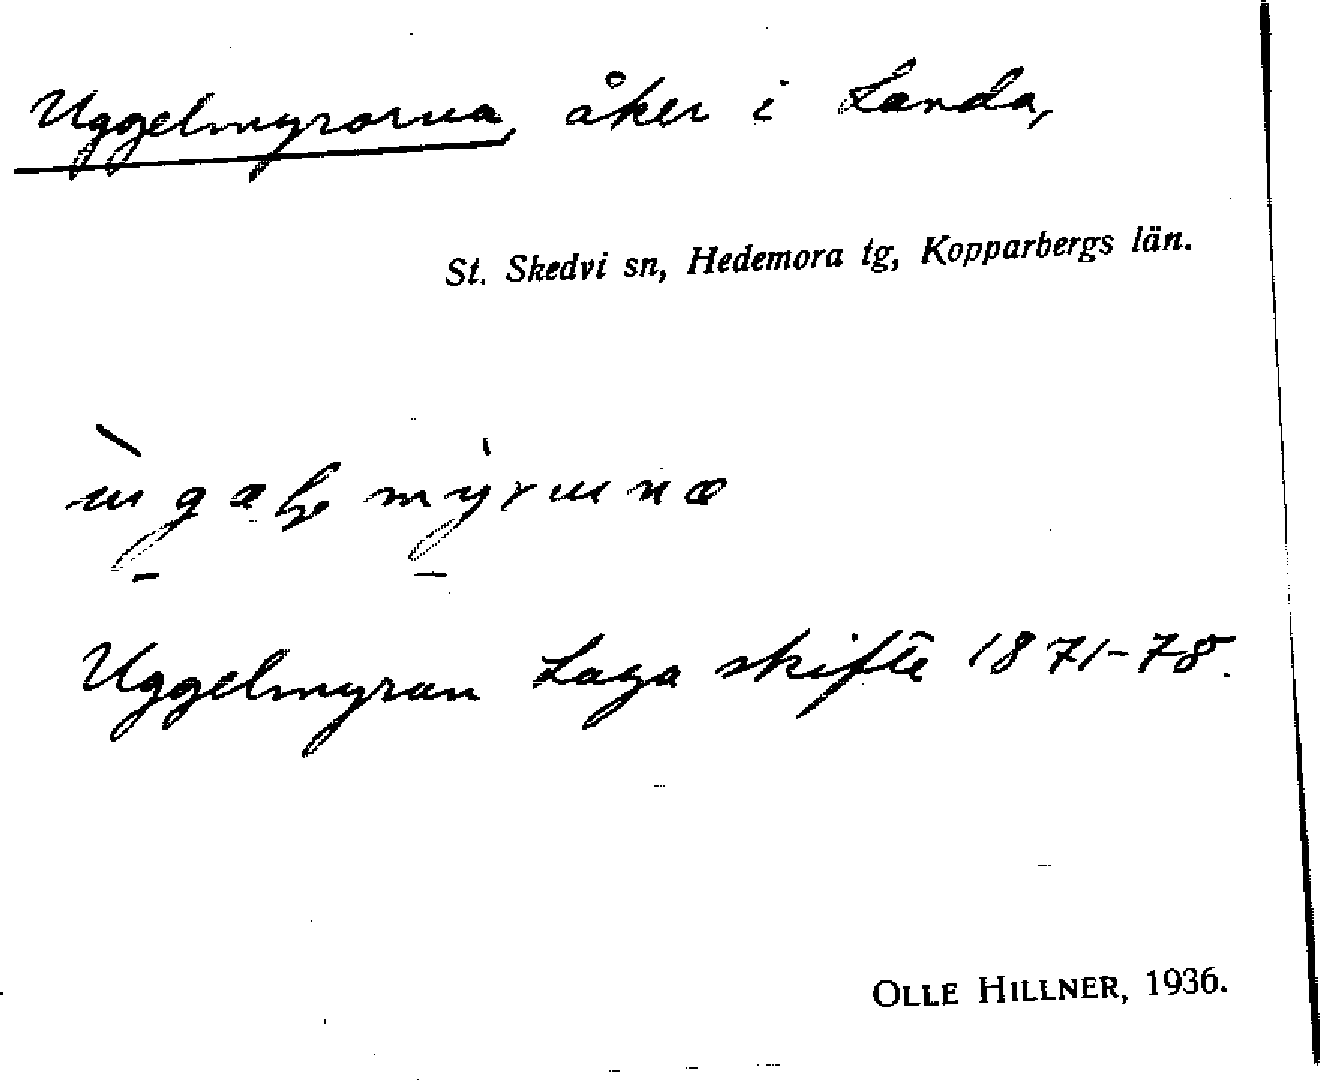 Uggelmyrorna, åker i Landa,
St. Skedvi sn, Hedemora tg, Kopparbergs län.
Uggelmyran Laga skifte 1871-78.
OLLE HILLNER, 1936.